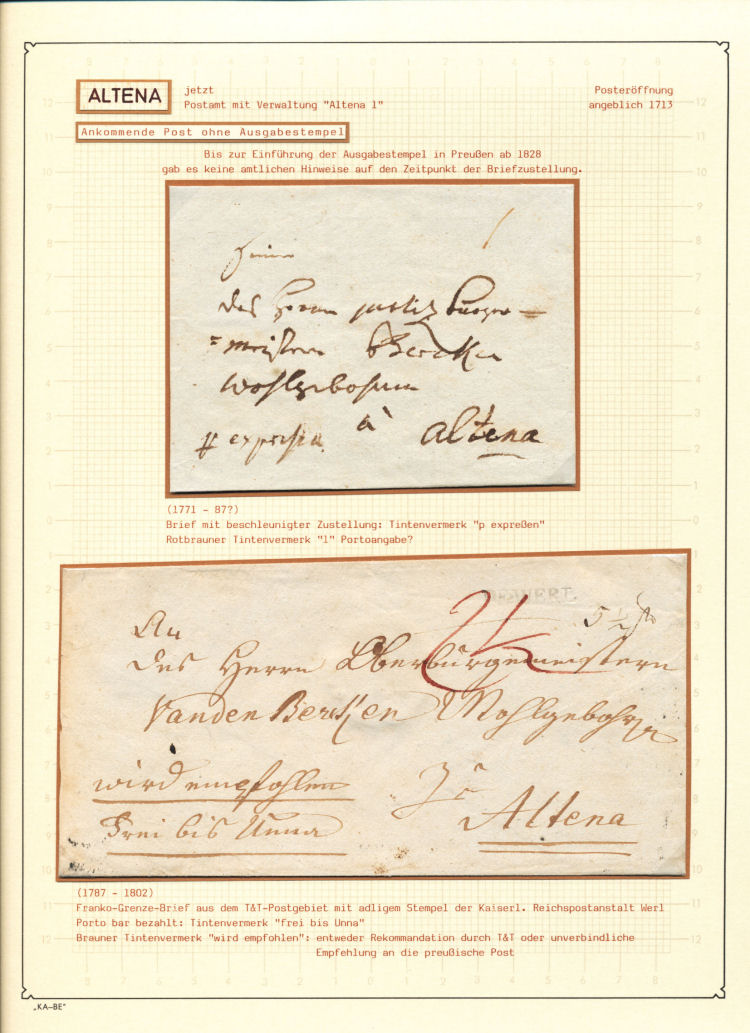 ALTENA
jetzt
Postamt mit Verwaltung "Altena 1"
Posteröffnung
angeblich 1713
Ankommende Post ohne Ausgabestempel
Bis zur Einführung der Ausgabestempel in Preußen ab 1828
gab es keine amtlichen Hinweise auf den Zeitpunkt der Briefzustellung.
des Herrn Justiz Burge=
=meistern
Wohlgebohrn
à Altena
(1771 - 87?)
Brief mit beschleunigter Zustellung: Tintenvermerk "p expreßen"
Rotbrauner Tintenvermerk "1" Portoangabe?
5 ½
An
des Herrn Oberbürgemeistern
Vanden Bercken Wohlgebohrn
wird empfohlen
Zu
Frei bis Unna
Altena
(1787 - 1802)
Franko-Grenze-Brief aus dem T&T-Postgebiet mit adligem Stempel der Kaiserl. Reichspostanstalt Werl
Porto bar bezahlt: Tintenvermerk "frei bis Unna"
Brauner Tintenvermerk "wird empfohlen": entweder Rekommandation durch T&T oder unverbindliche
Empfehlung an die preußische Post
„KA–BE"